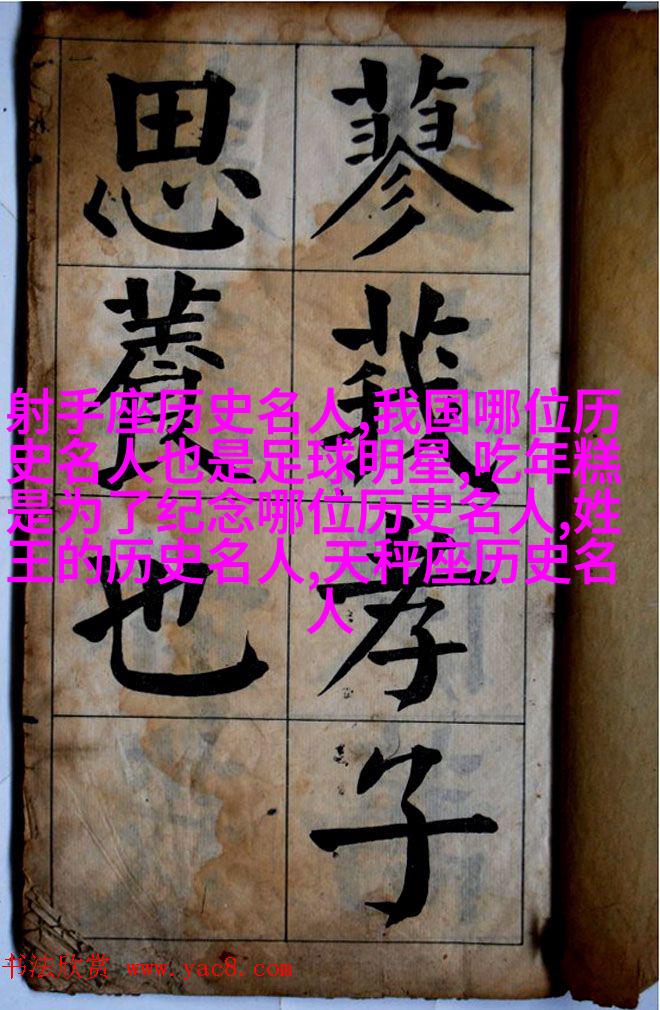 蓼莪孝子
思養也
射手座历史名人,我国哪位历
史名人也是足球明星,吃年糕
是为了纪念哪位历史名人,姓
王的历史名人,天秤座历史名
人
书法欣赏 www.yac8.com